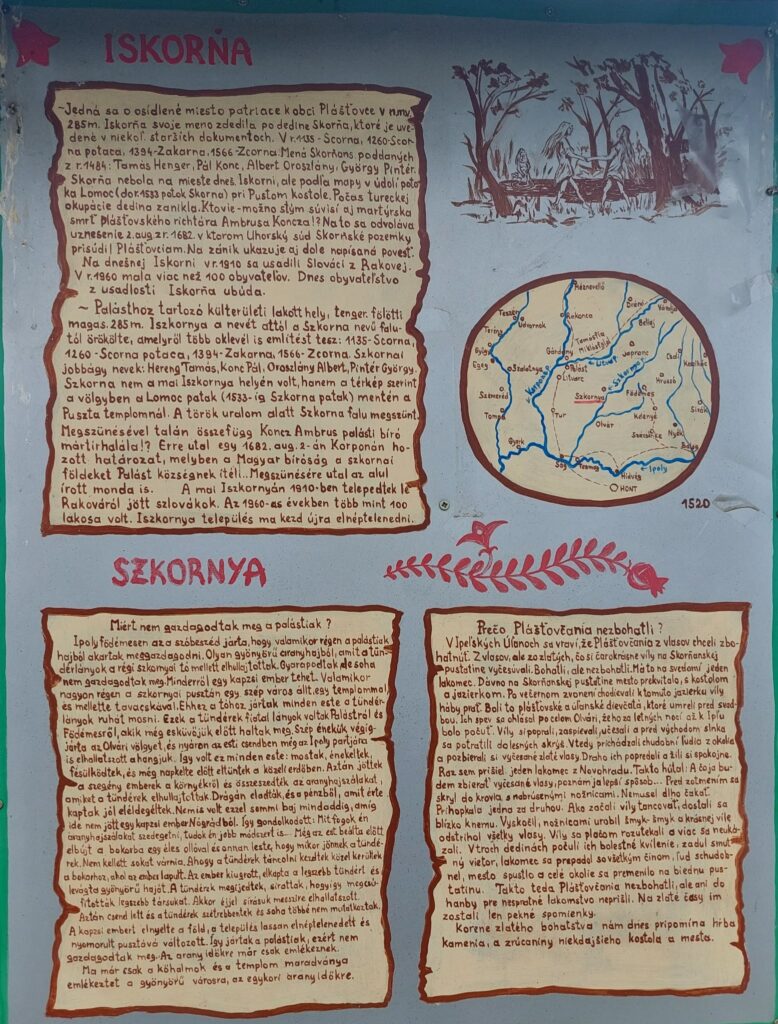 ISKORŇA
~Jedná sa o osídlené miesto patriace k obci Plášťovce v n.m.v.
285m. Iskorňa svoje meno zdedila po dedine Skorňa, ktoré je uve-
dené v niekoľ. starších dokumentoch. V r.1135 - Scorna, 1260-Scor-
na potaca, 1394-Zakarna, 1566-Zcorna. Mená Skorňans. poddaných
z r. 1484: Tamás Henger, Pál Konc, Albert Oroszlány, György Pintér.
Skorňa nebola na mieste dneš. Iskorni, ale podľa mapy v údolí poto-
ka Lomoc (do r. 1533 potok Skorňa) pri Pustom kostole. Počas tureckej
okupácie dedina zanikla. Ktovie-možno s tým súvisí aj martýrska
smrť plášťovského richtára Ambrusa Koncza!? Na to sa odvoláva
uznesenie 2. aug. z r. 1682. v ktorom Uhorský súd Skorňské pozemky
prisúdil Plášťovciam. Na zánik ukazuje aj dole napísaná povesť.
Na dnešnej Iskorni v r. 1910 sa usadili Slováci z Rakovej.
V r. 1960 mala viac než 100 obyvateľov. Dnes obyvateľstvo
z usadlosti Iskorňa ubúda.
~ Palásthoz tartozó külterületi lakott hely, tenger. fölötti
magas. 285m. Iszkornya a nevét attól a Szkorna nevű falu-
tól örökölte, amelyről több oklevél is említést tesz: 1135-Scorna,
1260 - Scorna potaca, 1394 - Zakarna, 1566 - Zcorna. Szkornai
jobbágy nevek: Hereng Tamás, Konc Pál, Oroszlány Albert, Pintér György.
Szkorna nem a mai Iszkornya helyén volt, hanem a térkép szerint
a völgyben a Lomoc patak (1533-ig Szkorna patak) mentén a
Puszta templomnál. A török uralom alatt Szkorna falu megszűnt.
Megszűnésével talán összefügg Koncz Ambrus palásti bíró
mártírhalála!? Erre utal egy 1682. aug. 2-án Korponán ho-
zott határozat, melyben a Magyar bíróság a szkornai
földeket Palást községnek ítéli.. Megszűnésére utal az alul
írott monda is. A mai Iszkornyán 1910-ben telepedtek le
Rakováról jött szlovákok. Az 1960-as években több mint 100
lakosa volt. Iszkornya település ma kezd újra elnéptelenedni.
Réznevelő
Teszér
Udvarnok
Rakonca
Teréng
Tamásfia
Miklósfalja
Gyügy
Gárdony
Palást
Egeg
Szalatnya
Litvarc
Korpona
Litava
Szkorna
Szkornya
Födémes
Szemeréd
Tompa
Tur
Olvár
Gyerk
Nyék
Ság
Tesmag
Hidvég
Ipoly
HONT
1520
SZKORNYA
Miért nem gazdagodtak meg a palástiak ?
Ipolyfödémesen az a szóbeszéd járta, hogy valamikor régen a palástiak
hajból akartak meggazdagodni. Olyan gyönyörű aranyhajból, amit a tün-
dérlányok a régi szkornyai tó mellett elhullajtottak. Gyarapodtak, de soha
nem gazdagodtak meg. Minderről egy kapzsi ember tehet. Valamikor
nagyon régen a szkornyai pusztán egy szép város állt, egy templommal,
és mellette tavacskával. Ehhez a tóhoz jártak minden este a tündér-
lányok ruhát mosni. Ezek a tündérek fiatal lányok voltak Palástról és
Födémesről, akik még esküvőjük előtt haltak meg. Szép énekük végig-
járta az Olvári völgyet, és nyáron az esti csendben még az Ipoly partjára
is elhallatszott a hangjuk. Így volt ez minden este: mostak, énekeltek,
fésülködtek, és még napkelte előtt eltűntek a közeli erdőben. Aztán jöttek
a szegény emberek a környékről és összeszedték az aranyhajszálakat,
amiket a tündérek elhullajtottak. Drágán eladták, és a pénzből, amit érte
kaptak jól éldegéltek. Nem is volt ezzel sommi baj mindaddig, amíg
ide nem jött egy kapzsi ember Nógrádból. Így gondolkodott: Mit fogok én
aranyhajszálakat szedegetni, tudok én jobb módszert is... Még az est beállta előtt
elbújt a bokorba egy éles ollóval és onnan leste, hogy mikor jönnek a tündé-
rek. Nem kellett sokat várnia. Ahogy a tündérek táncolni kezdtek közel kerültek
a bokorhoz, ahol az ember lapult. Az ember kiugrott, elkapta a legszebb tündért és
levágta gyönyörű haját. A tündérek megijedtek, sírattak, hogy így megcsú-
fították legszebb társukat. Akkor éjjel sírásuk messzire elhallatszott.
Aztán csend lett és a tündérek szétrebbentek és soha többé nem mutatkoztak.
A kapzsi embert elnyelte a föld, a település lassan elnéptelenedett és
nyomorult pusztává változott. Így jártak a palástiak, ezért nem
gazdagodtak meg. Az arany időkre már csak emlékeznek.
Ma már csak a kőhalmok és a templom maradványa
emlékeztet a gyönyörű városra, az egykori arany időkre.
Prečo Plášťovčania nezbohatli ?
V Ipeľských Úľanoch sa vraví, že Plášťovčania z vlasov chceli zbo-
hatnúť. Z vlasov, ale zo zlatých, čo si čarokrásne víly na Skorňanskej
pustatine vyčesuvali. Bohatli, ale nezbohatli. Má to na svedomí jeden
lakomec. Dávno na Skorňanskej pustatine mesto prekvitalo, s kostolom
a jazierkom. Po večernom zvonení chodievali k tomuto jazierku víly
háby prať. Boli to plášťovské a úľanské dievčatá, ktoré umreli pred svad-
bou. Ich spev sa ohlásal po celom Olvári, že ho za letných nocí až k Ipľu
bolo počuť. Víly si popráli, zaspievali, učesali a pred východom slnka
sa potratili do lesných skrýš. Vtedy prichádzali chudobní ľudia z okolia
a pozbierali si vyčesané zlaté vlasy. Draho ich popredali a žili si spokojne.
Raz sem prišiel jeden lakomec z Novohradu. Takto hútal: A čo ja bu-
dem zbierať vyčesané vlasy, poznám ja lepší spôsob... Pred zotmením sa
skryl do krovia s nabrúsenými nožnicami. Nemusel dlho čakať.
Prihopkala jedna za druhou. Ako začali víly tancovať, dostali sa
blízko k nemu. Vyskočil, nožnicami urobil šmyk-šmyk a krásnej víle
odstrihol všetky vlasy. Víly sa s plačom rozutekali a viac sa neuká-
zali. V troch dedinách počuli ich bolestné kvílenie, zadul smut-
ný vietor, lakomec sa prepadol so všetkým činom, ľud schudob-
nel, mesto spustlo a celé okolie sa premenilo na biednu pus-
tatinu. Takto teda Plášťovčania nezbohatli, ale ani do
hanby pre nespratné lakomstvo neprišli. Na zlaté časy im
zostali len pekné spomienky.
Korene zlatého bohatstva nám dnes pripomína hŕba
kamenia, a zrúcaniny niekdajšieho kostola a mesta.